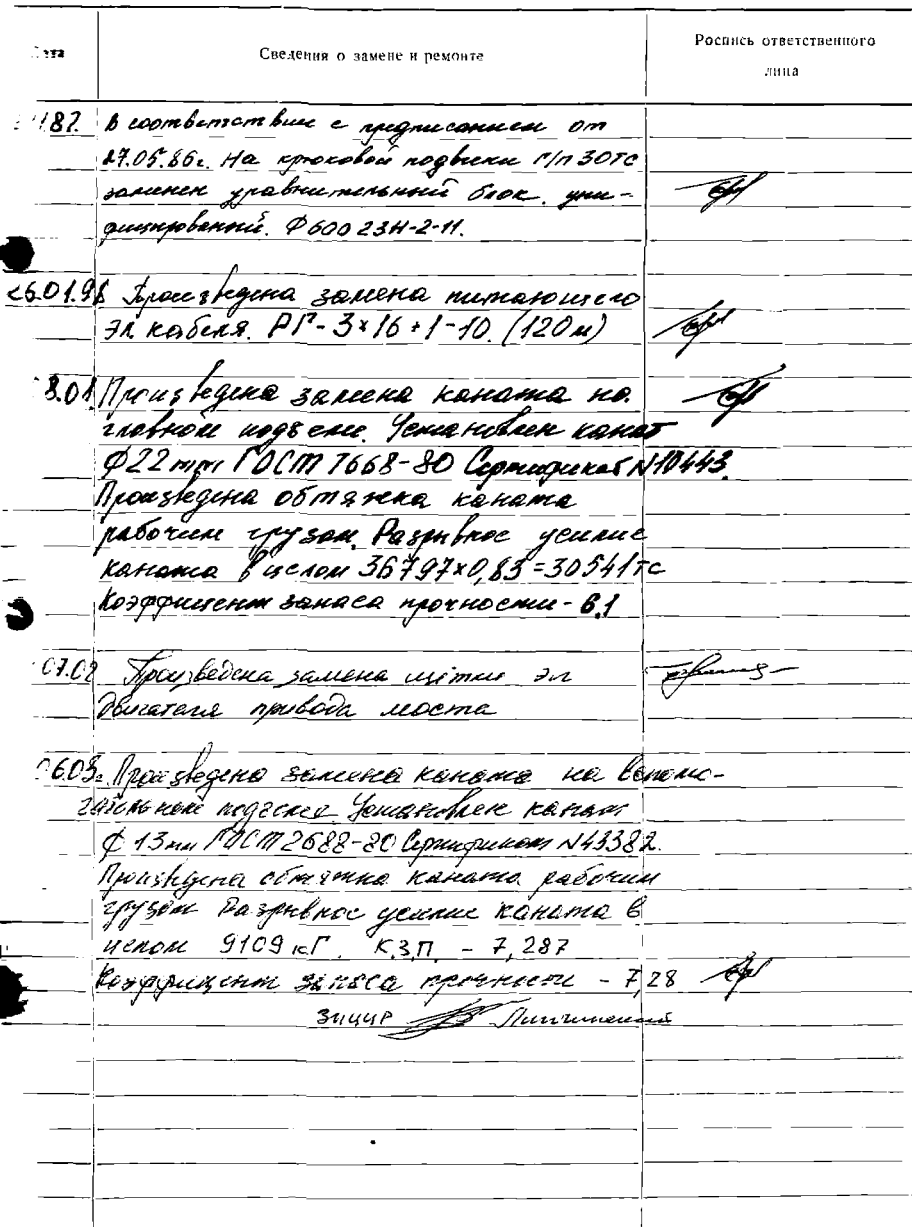 Дата Сведения о замене и ремонте Роспись ответственного
лица
.87. В соответствии с предписанием от
27.05.86г. На крюковой подвески г/п 30тс
заменен уравнительный блок. уни-
фицированный. Ф600 23Н-2-11.
26.01.98 Произведена замена питающего
эл. кабеля. РГ-3×16+1-10. (120м)
8.01 Произведена замена каната на
главном подъеме. Установлен канат
Ф22mm ГОСТ 7668-80 Сертификат N10443.
Произведена обтяжка каната
рабочим грузом. Разрывное усилие
каната в целом 36797×0,83=30541тс
Коэффициент запаса прочности - 6.1
07.02 Произведена замена щётки эл
двигателя привода моста
06.03г. Произведена замена каната на вспомо-
гательном подъеме Установлен канат
Ф 13mm ГОСТ 2688-80 Сертификат N43382.
Произведена обтяжка каната рабочим
грузом Разрывное усилие каната в
целом 9109 кГ. К.З.П. - 7,287
Коэффициент запаса прочности - 7,28